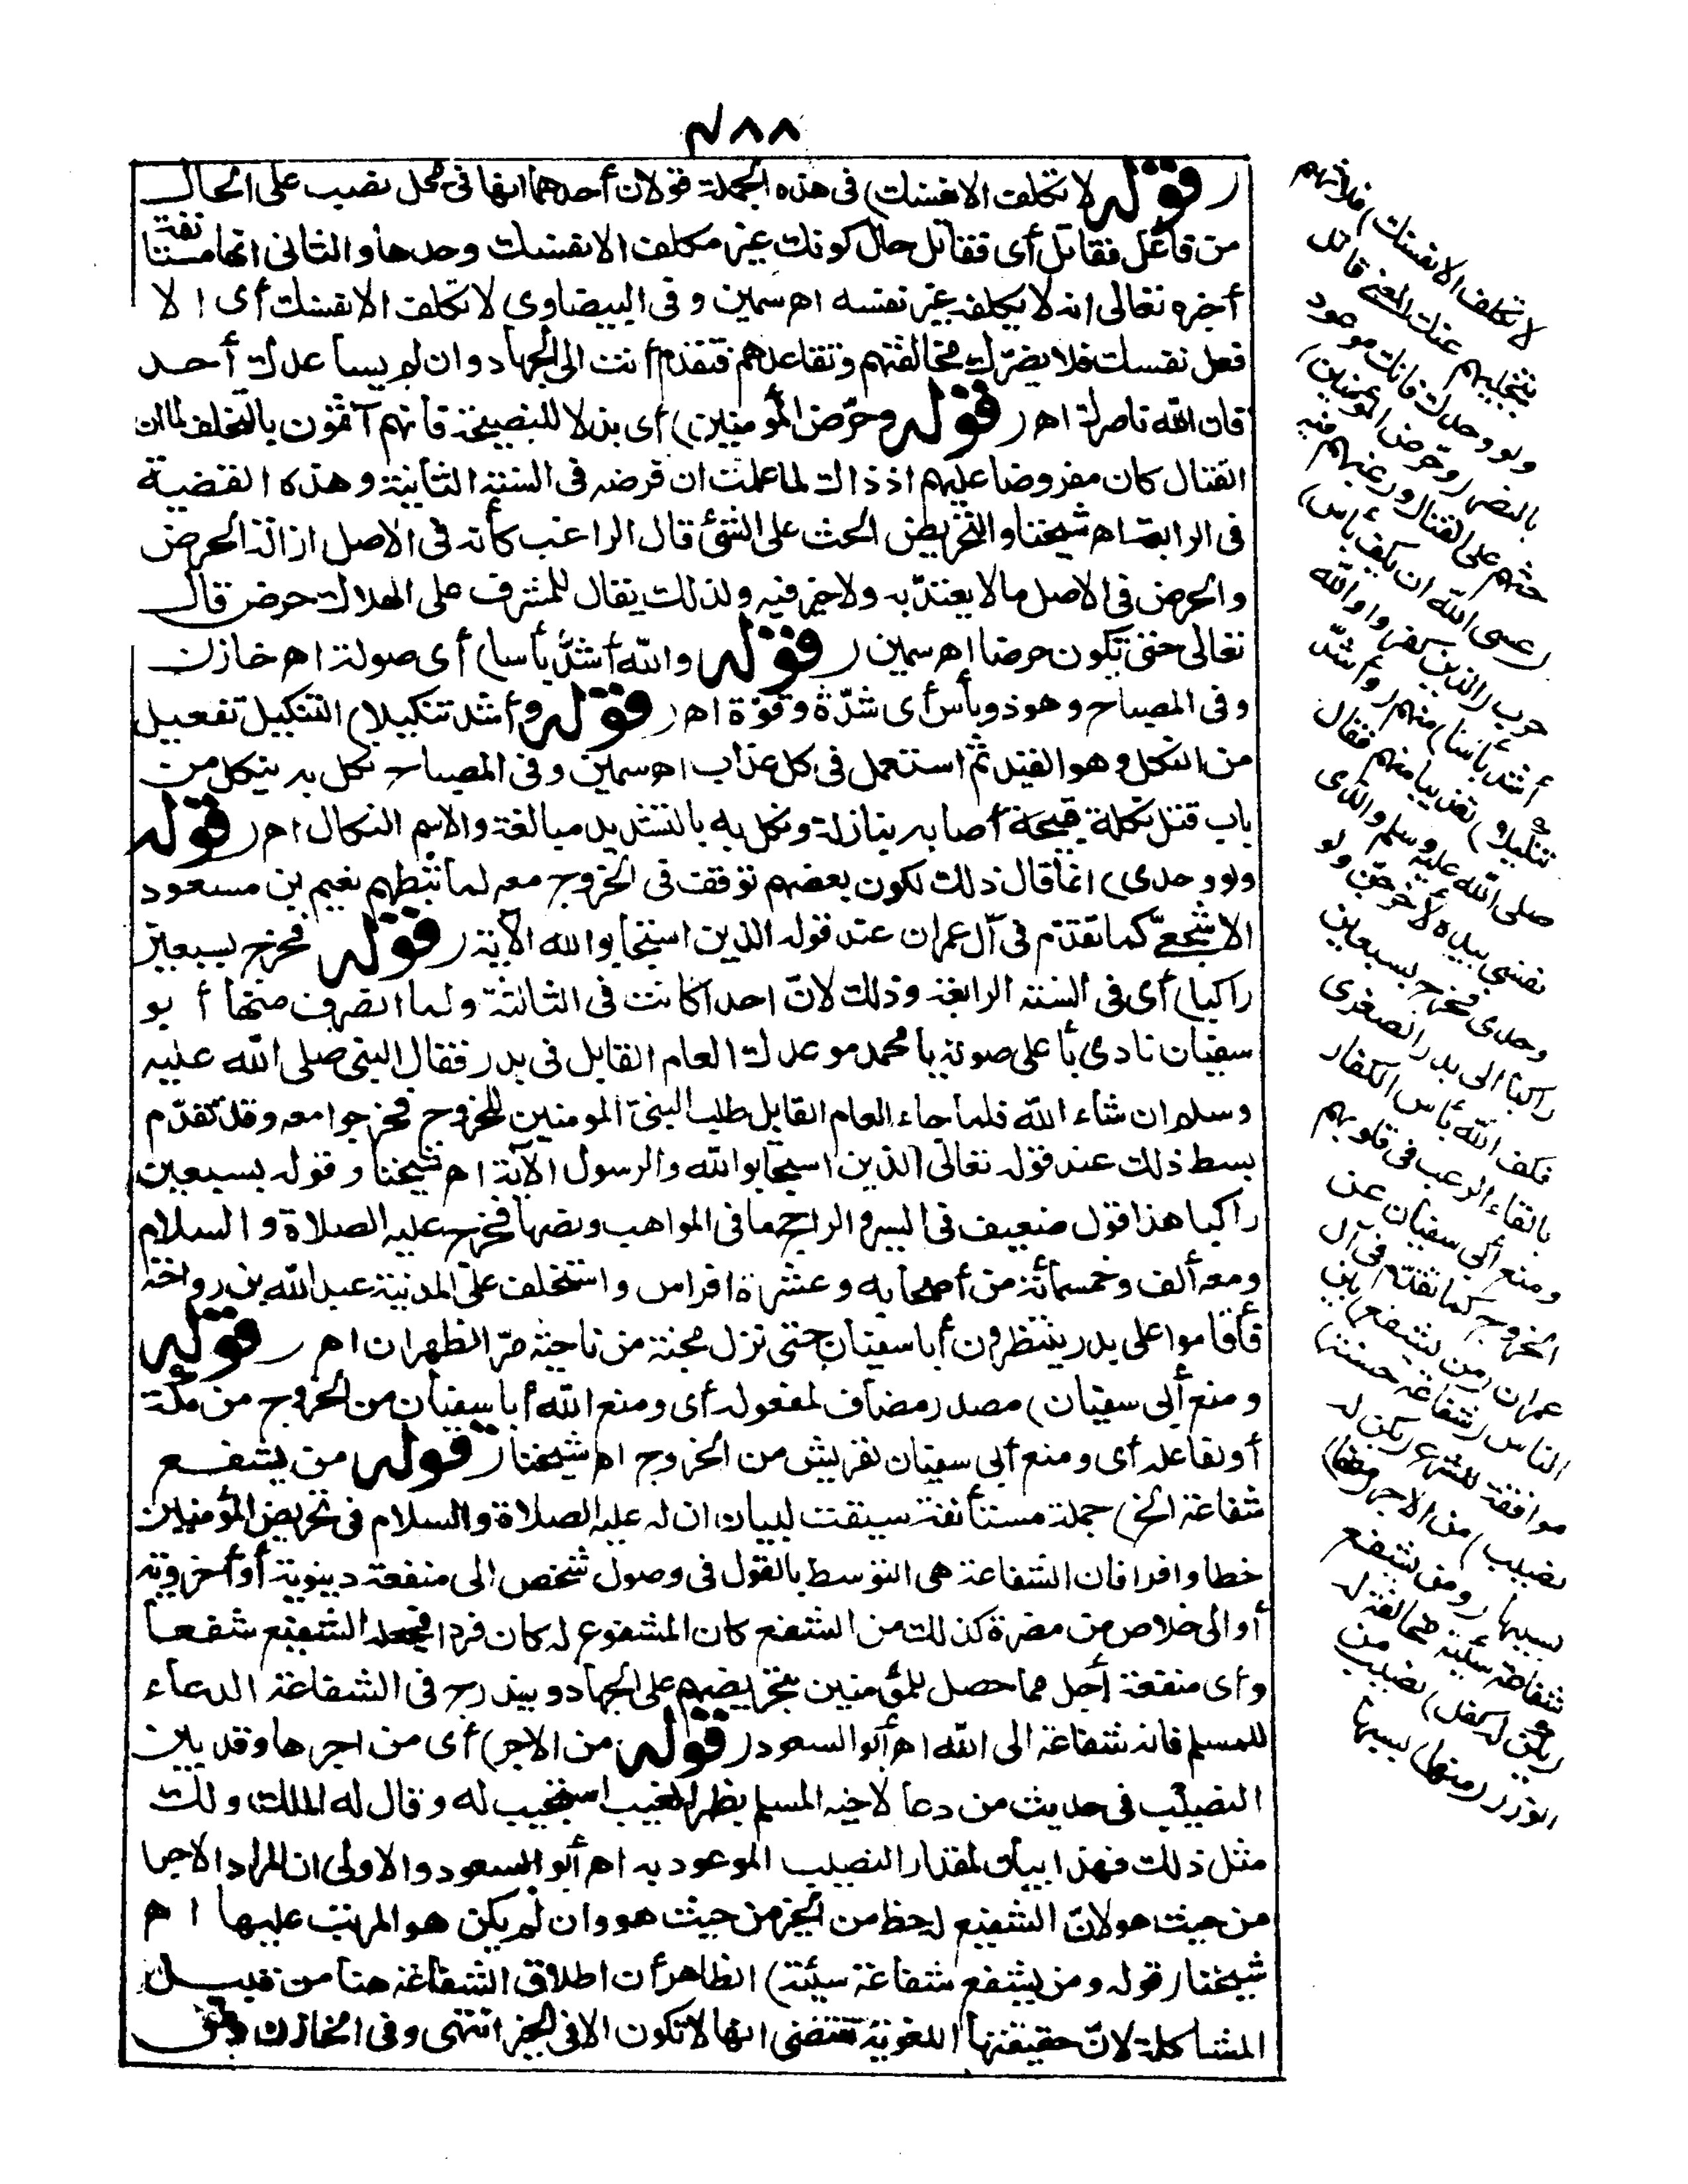 ٤٨٨
(قوله لا تكلف الا نفسك) فى هذه الجملة قولان أحدهما انها فى محل نصب على الحال
من فاعل فقاتل أى فقاتل حال كونك غير مكلف الا نفسك وحدها والثانى انها مستأنفة
أخبره تعالى انه لا يكلفه غير نفسه اه سمين وفى البيضاوى لا تكلف الا نفسك أى الا
فعل نفسك فلا يضرّك مخالفتهم وتقاعدهم فتقدم أنت الى الجهاد وان لم يساعدك أحد
فان الله ناصرك اه (قوله وحرّض المؤمنين) أى بذلا للنصيحة فانهم آثمون بالتخلف لما ان
القتال كان مفروضا عليهم اذ ذاك لما علمت ان فرضه فى السنة الثانية وهذه القضية
فى الرابعة اه شيخنا والتحريض الحث على الشئ قال الراغب كأنه فى الاصل ازالة الحرض
والحرض فى الاصل ما لا يعتدّ به ولا خير فيه ولذلك يقال للمشرف على الهلاك حرض قال
تعالى حتى تكون حرضا اه سمين (قوله والله أشدّ بأسا) أى صولة اه خازن
وفى المصباح وهو ذو بأس أى شدّة وقوّة اه (قوله وأشد تنكيلا) التنكيل تفعيل
من النكل وهو القيد ثم استعمل فى كل عذاب اه سمين وفى المصباح نكل به ينكل من
باب قتل نكلة قبيحة أصابه بنازلة ونكل به بالتشديد مبالغة والاسم النكال اه (قوله
ولو وحدى) انما قال ذلك لكون بعضهم توقف فى الخروج معه لما ثبطهم نعيم بن مسعود
الاشجعىّ كما تقدّم فى آل عمران عند قوله الذين استجابوا لله الآية (قوله فخرج بسبعين
راكبا) أى فى السنة الرابعة وذلك لانّ احدا كانت فى الثالثة ولما انصرف منها أبو
سفيان نادى بأعلى صوته يا محمد موعدك العام القابل فى بدر فقال النبى صلى الله عليه
وسلم ان شاء الله فلما جاء العام القابل طلب النبىّ المومنين للخروج فخرجوا معه وقد تقدّم
بسط ذلك عند قوله تعالى الذين استجابوا لله والرسول الآية اه شيخنا وقوله بسبعين
راكبا هذا قول ضعيف فى السير والراجح ما فى المواهب ونصها فخرج عليه الصلاة والسلام
ومعه ألف وخمسمائة من أصحابه وعشرة افراس واستخلف على المدينة عبد الله بن رواحة
فأقاموا على بدر ينتظرون أبا سفيان حتى نزل مجنة من ناحية مرّ الظهران اه (قوله
ومنع أبى سفيان) مصدر مضاف لمفعوله أى ومنع الله أبا سفيان من الخروج من مكة
أو لفاعله أى ومنع أبى سفيان لقريش من الخروج اه شيخنا (قوله من يشفع
شفاعة الخ) جملة مستأنفة سيقت لبيان ان له عليه الصلاة والسلام فى تحريض المؤمنين
حظا وافرا فان الشفاعة هى التوسط بالقول فى وصول شخص الى منفعة دينوية أو أخروية
أو الى خلاص من مضرة كذلك من الشفع كان المشفوع له كان فردا فجعله الشفيع شفعا
وأى منفعة أجل مما حصل للمؤمنين بتحريضهم على الجهاد ويندرج فى الشفاعة الدعاء
للمسلم فانه شفاعة الى الله اه أبو السعود (قوله من الاجر) أى من اجرها وقد بين
النصيب فى حديث من دعا لاخيه المسلم بظهر الغيب استجيب له وقال له الملك ولك
مثل ذلك فهذا بيان لمقدار النصيب الموعود به اه أبو السعود والاولى ان المراد الاجر
من حيث هو لانّ الشفيع له حظ من الخير من حيث هو وان لم يكن هو المرتب عليها اه
شيخنا (قوله ومن يشفع شفاعة سيئة) الظاهر أن اطلاق الشفاعة هنا من قبيل
المشاكلة لانّ حقيقتها اللغوية تقتضى انها لا تكون الا فى الخير انتهى وفى الخازن
لا تكلف الا نفسك) فلا تهتم
بتخلفهم عنك المعنى قاتل
ولو وحدك فانك موعود
بالنصر (وحرّض المؤمنين)
حثهم على القتال ورغبهم فيه
(عسى الله ان يكف بأس)
حرب (الذين كفروا والله
أشد بأسا) منهم (وأشدّ
تنكيلا) تعذيبا منهم فقال
صلى الله عليه وسلم والذى
نفسى بيده لأخرجنّ ولو
وحدى فخرج بسبعين
راكبا الى بدر الصغرى
فكف الله بأس الكفار
بالقاء الرعب فى قلوبهم
ومنع أبى سفيان عن
الخروج كما تقدّم فى آل
عمران (من يشفع) بين
الناس (شفاعة حسنة)
موافقة للشرع (يكن له
نصيب) من الاجر (منها)
بسببها (ومن يشفع
شفاعة سيئة) مخالفة له
(يكن له كفل) نصيب من
الوزر (منها) بسببها